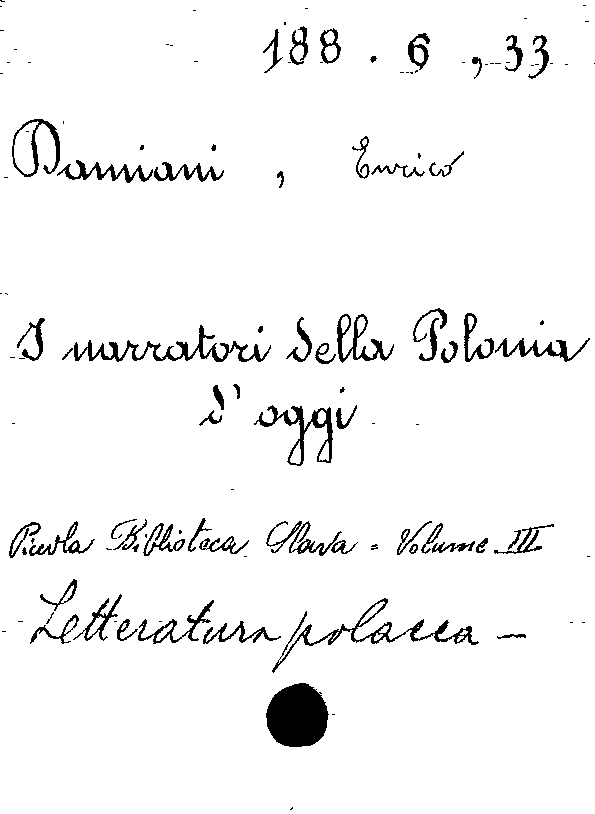 188 . 6 , 33
Damiani , Enrico
I narratori della Polonia
d' oggi
Piccola Biblioteca Slava - Volume III
Letteratura polacca -